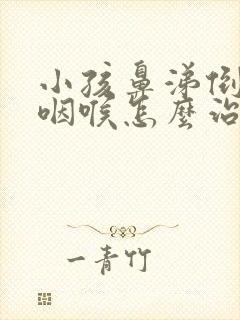 小孩鼻涕倒
咽喉怎麼治
一青竹